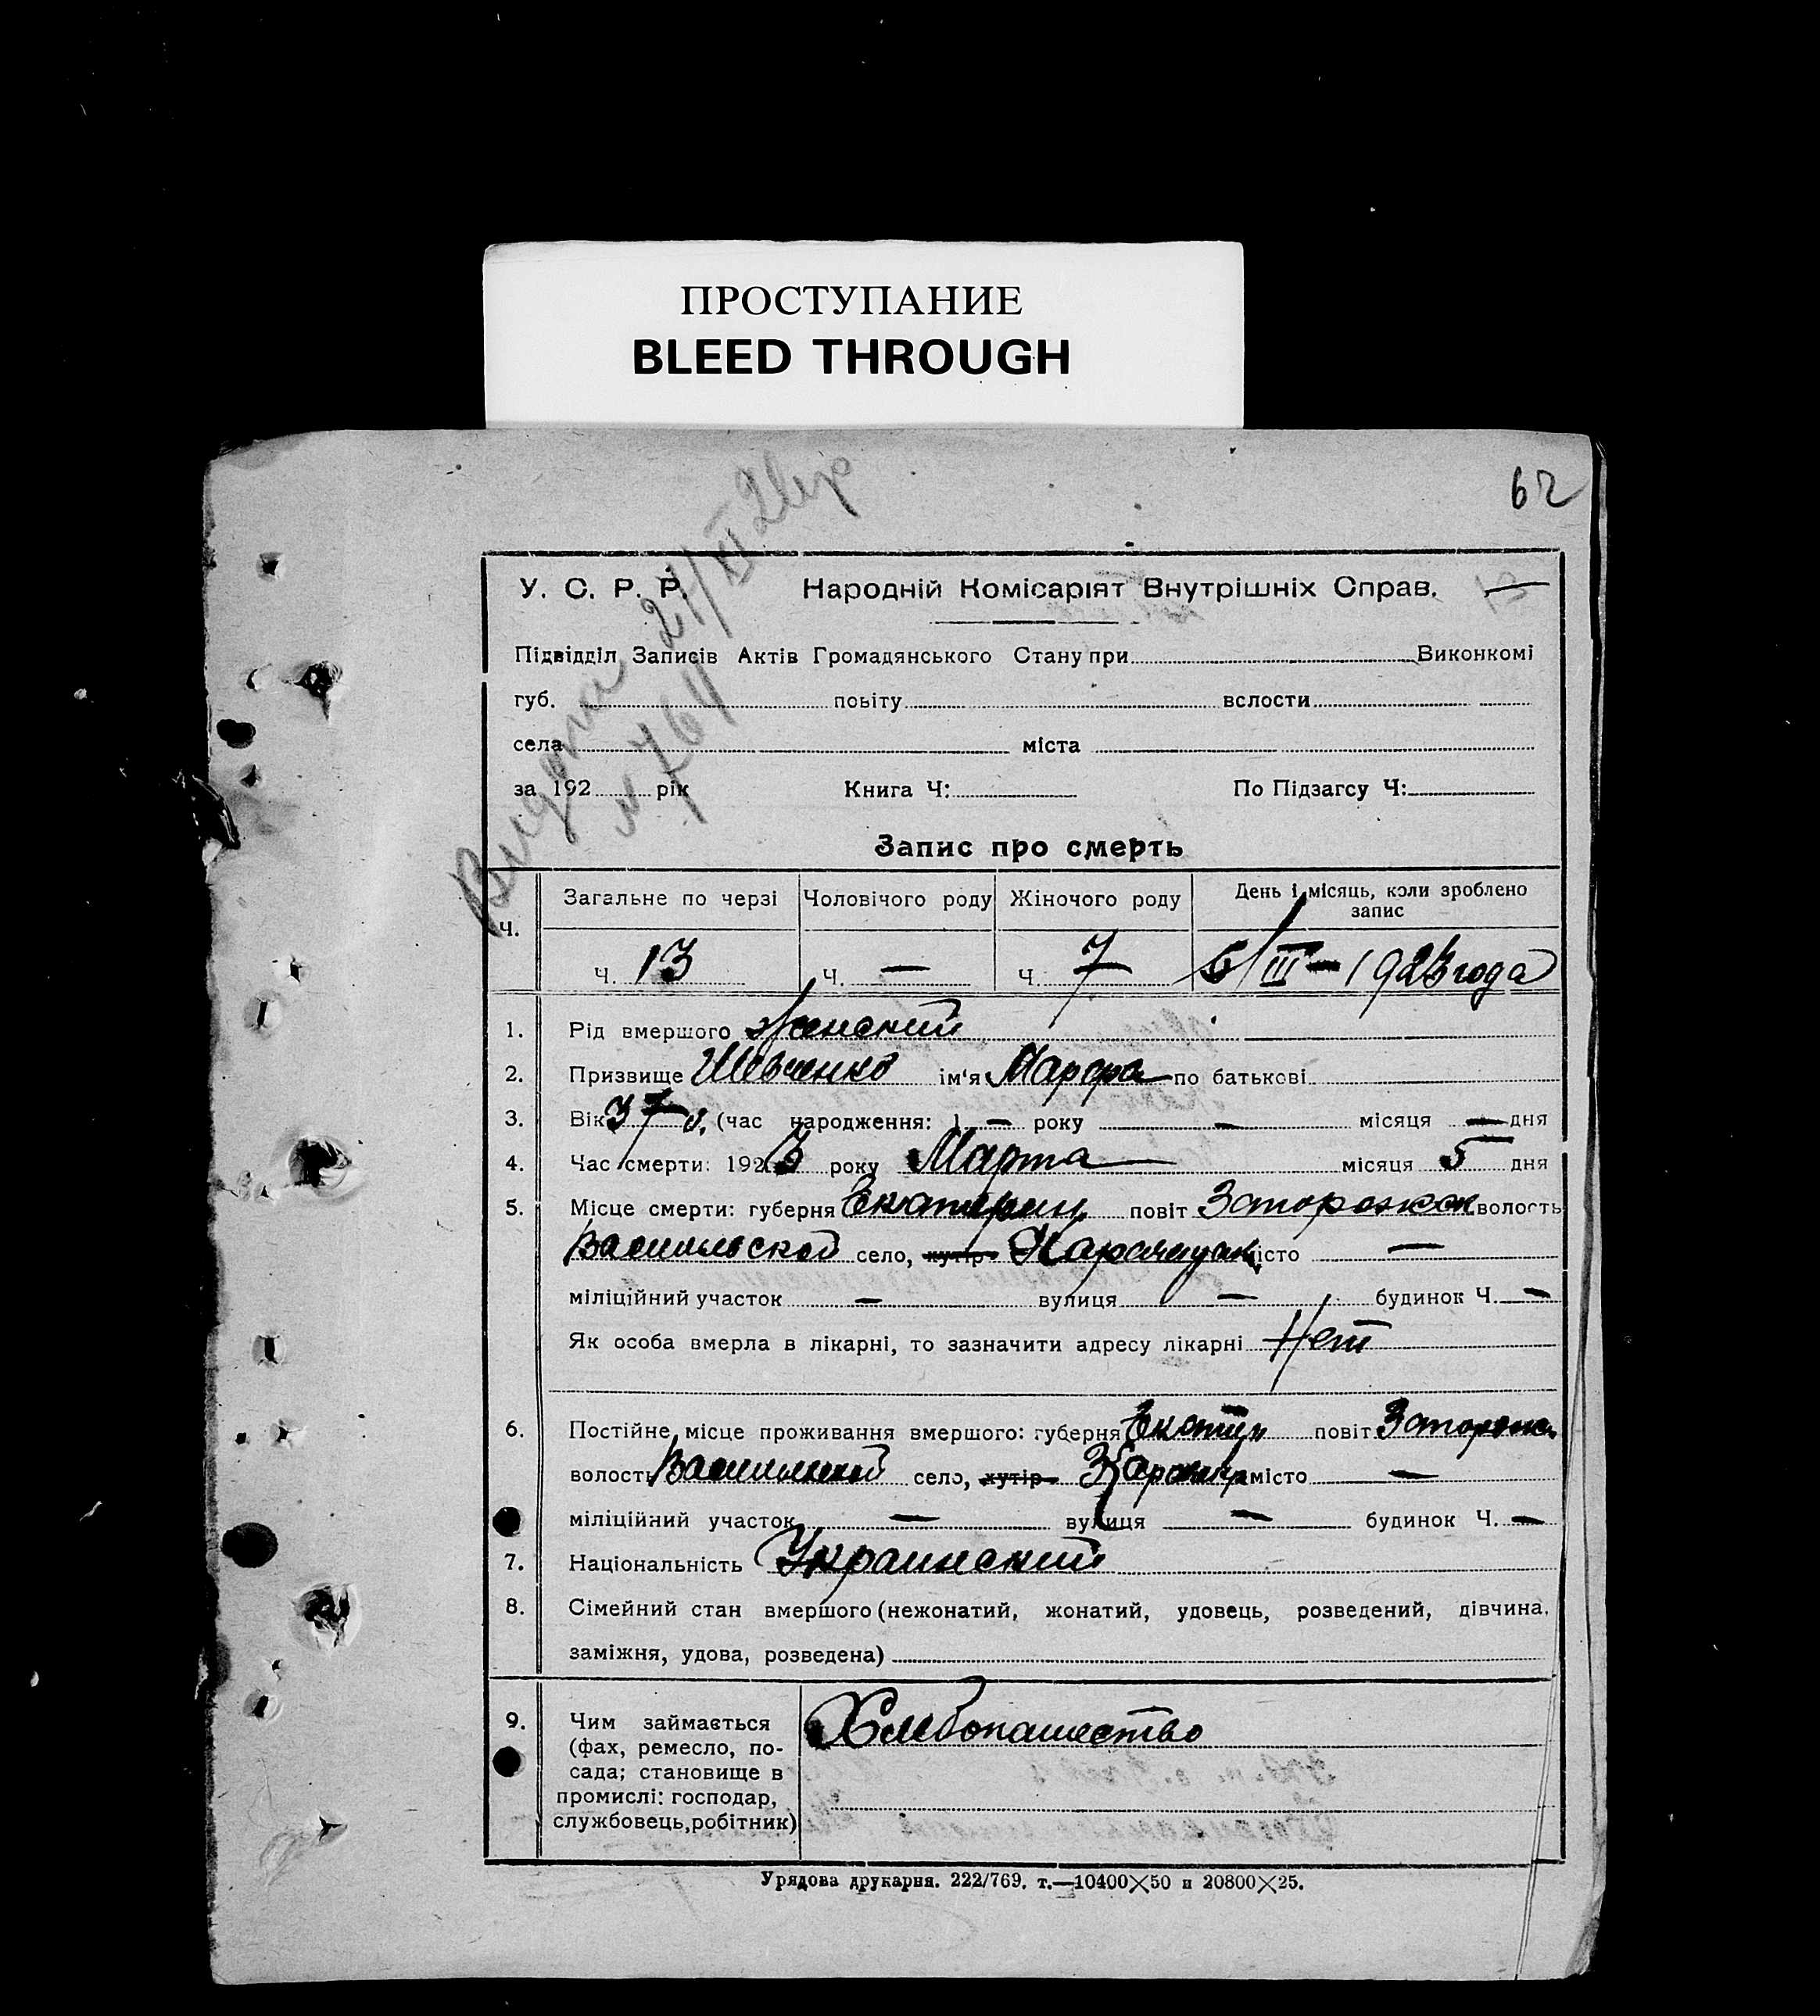 ПРОСТУПАНИЕ
BLEED THROUGH
62
У. С. Р. Р. Народній Комісаріят Внутрішніх Справ.
Підвідділ Записів Актів Громадянського Стану при Виконкомі
губ. повіту вслости
села міста
за 192 рік Книга Ч: По Підзагсу Ч:
Видана 24/VI
Запис про смерть
Ч. Загальне по черзі Чоловічого роду Жіночого роду День і місяць, коли зроблено запис
Ч. 13 Ч. — Ч. 7 6/III – 1923 года
1. Рід вмершого Женский
2. Призвище Шевченко ім'я Марфа по батькові
3. Вік 37 (час народження: 1 — року — місяця — дня
4. Час смерти: 1923 року Марта місяця 5 дня
5. Місце смерти: губерня Екатерин повіт Запорожск волость
Васильской село, хутір місто —
міліційний участок — вулиця — будинок Ч. —
Як особа вмерла в лікарні, то зазначити адресу лікарні Нет
6. Постійне місце проживання вмершого: губерня повіт Запорож
волость Васильской село, хутір місто —
міліційний участок — вулиця — будинок Ч. —
7. Національність Украинский
8. Сімейний стан вмершого (нежонатий, жонатий, удовець, розведений, дівчина,
заміжня, удова, розведена)
9. Чим займається Хлебопашество
(фах, ремесло, по-
сада; становище в
промислі: господар,
службовець, робітник)
Урядова друкарня. 222/769. т.—10400×50 и 20800×25.